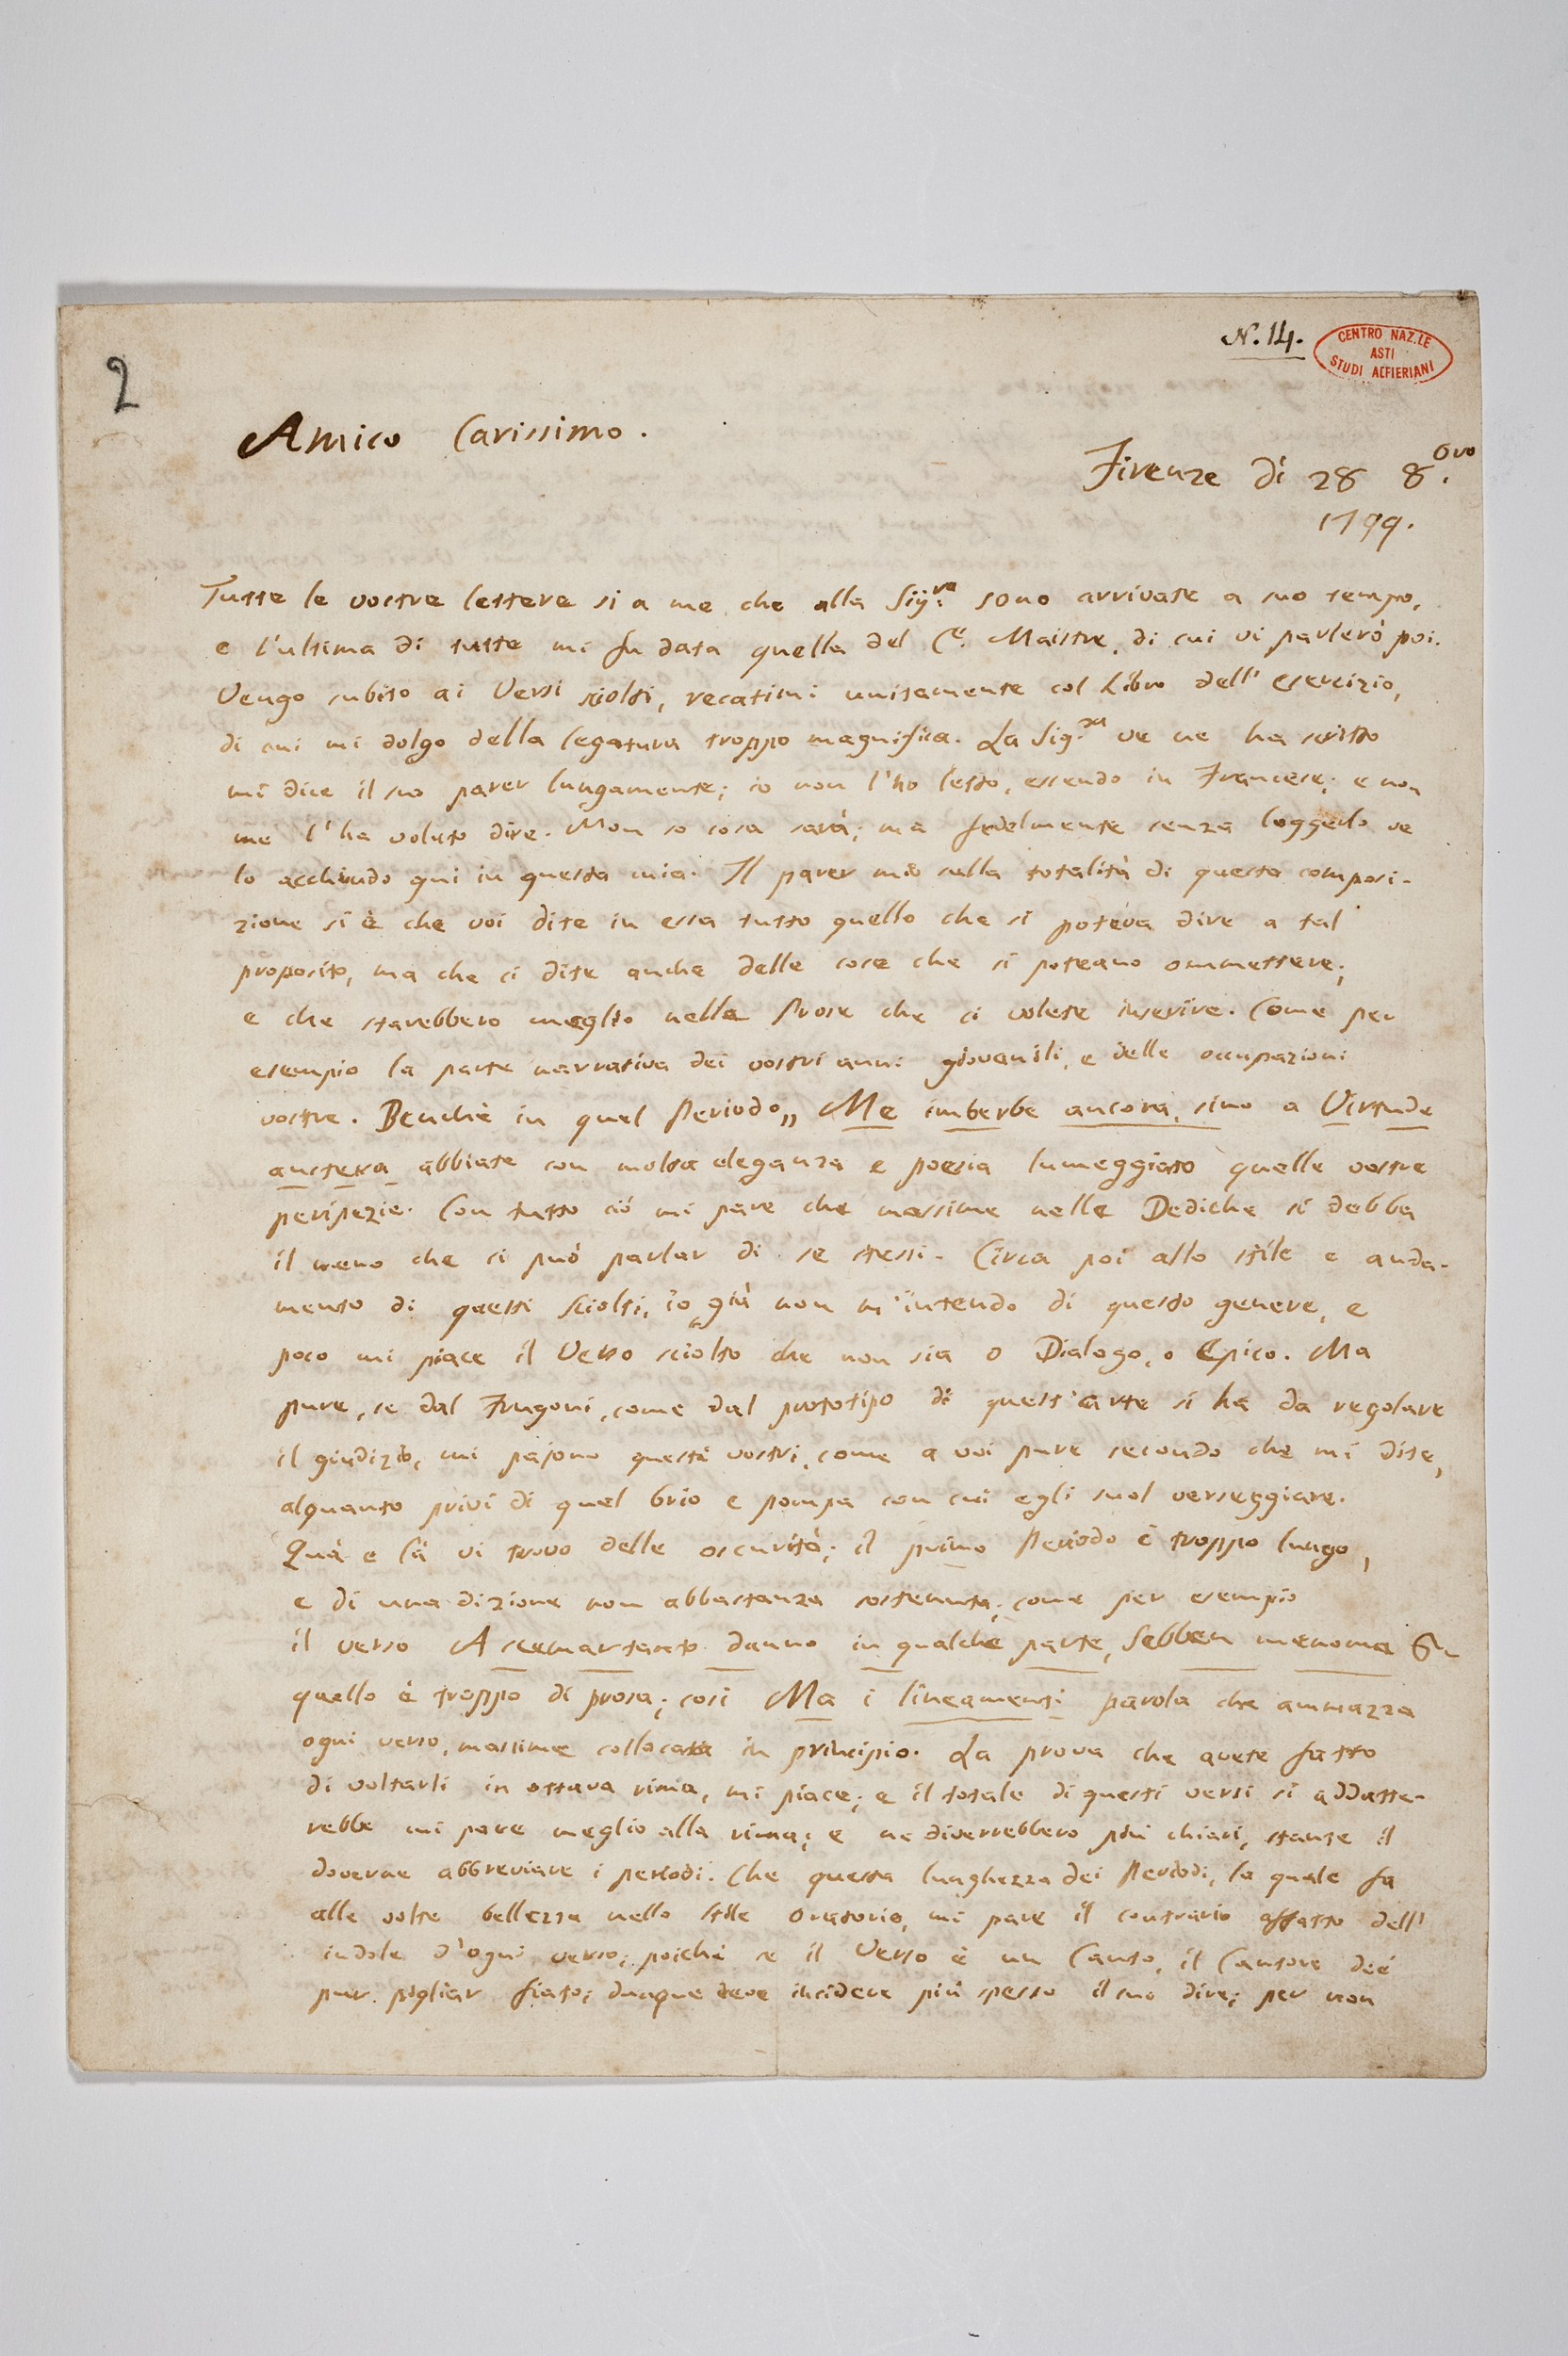 N. 14.
CENTRO NAZ.LE
ASTI
STUDI ALFIERIANI
2
Amico Carissimo.
Firenze dì 28 8.bre
1799.
Tutte le vostre lettere sì a me che alla Sig.ra sono arrivate a suo tempo,
e l'ultima di tutte mi fu data quella del C.e Maistre, di cui vi parlerò poi.
Vengo subito ai Versi sciolti, recatimi unitamente col Libro dell'esercizio,
di cui mi dolgo della legatura troppo magnifica. La Sig.ra ve ne ha scritto
mi dice il suo parer lungamente; io non l'ho letto, essendo in Francese; e non
me l'ha voluto dire. Non so cosa sarà; ma fedelmente senza leggerlo ve
lo acchiudo qui in questa mia. Il parer mio sulla totalità di questa composi-
zione si è che voi dite in essa tutto quello che si poteva dire a tal
proposito, ma che ci dite anche delle cose che si poteano ommettere;
e che starebbero meglio nella Prose che ci volete inserire. Come per
esempio la parte narrativa dei vostri anni giovanili, e delle occupazioni
vostre. Benchè in quel Periodo,, Me imberbe ancora, sino a Virtude
austera abbiate con molta eleganza e poesia lumeggiato quelle vostre
peripezie. Con tutto ciò mi pare che massime nelle Dediche si debba
il meno che si può parlar di se stessi. Circa poi allo stile e anda-
mento di questi Sciolti, io già non m'intendo di questo genere, e
poco mi piace il Verso sciolto che non sia o Dialogo, o Epico. Ma
pure, se dal Frugoni, come dal prototipo di quest'arte si ha da regolare
il giudizio, mi pajono questi vostri, come a voi pure secondo che mi dite,
alquanto privi di quel brio e pompa con cui egli suol verseggiare.
Quà e là vi trovo delle oscurità; il primo Periodo è troppo lungo,
e di una dizione non abbastanza sostenuta; come per esempio
il verso A scemar tanto danno in qualche parte, Sebben menoma
quello è troppo di prosa; così Ma i lineamenti parola che ammazza
ogni verso, massime collocata in principio. La prova che avete fatto
di voltarli in ottava rima, mi piace; e il totale di questi versi si addatte-
rebbe mi pare meglio alla rima; e ne diverrebbero più chiari, stante il
doverne abbreviare i periodi. Che questa lunghezza dei Periodi, la quale fa
alle volte bellezza nello stile Oratorio, mi pare il contrario affatto dell'
indole d'ogni verso; poichè se il Verso è un Canto, il Cantore deè
pur pigliar fiato; dunque deve incidere più spesso il suo dire; per non